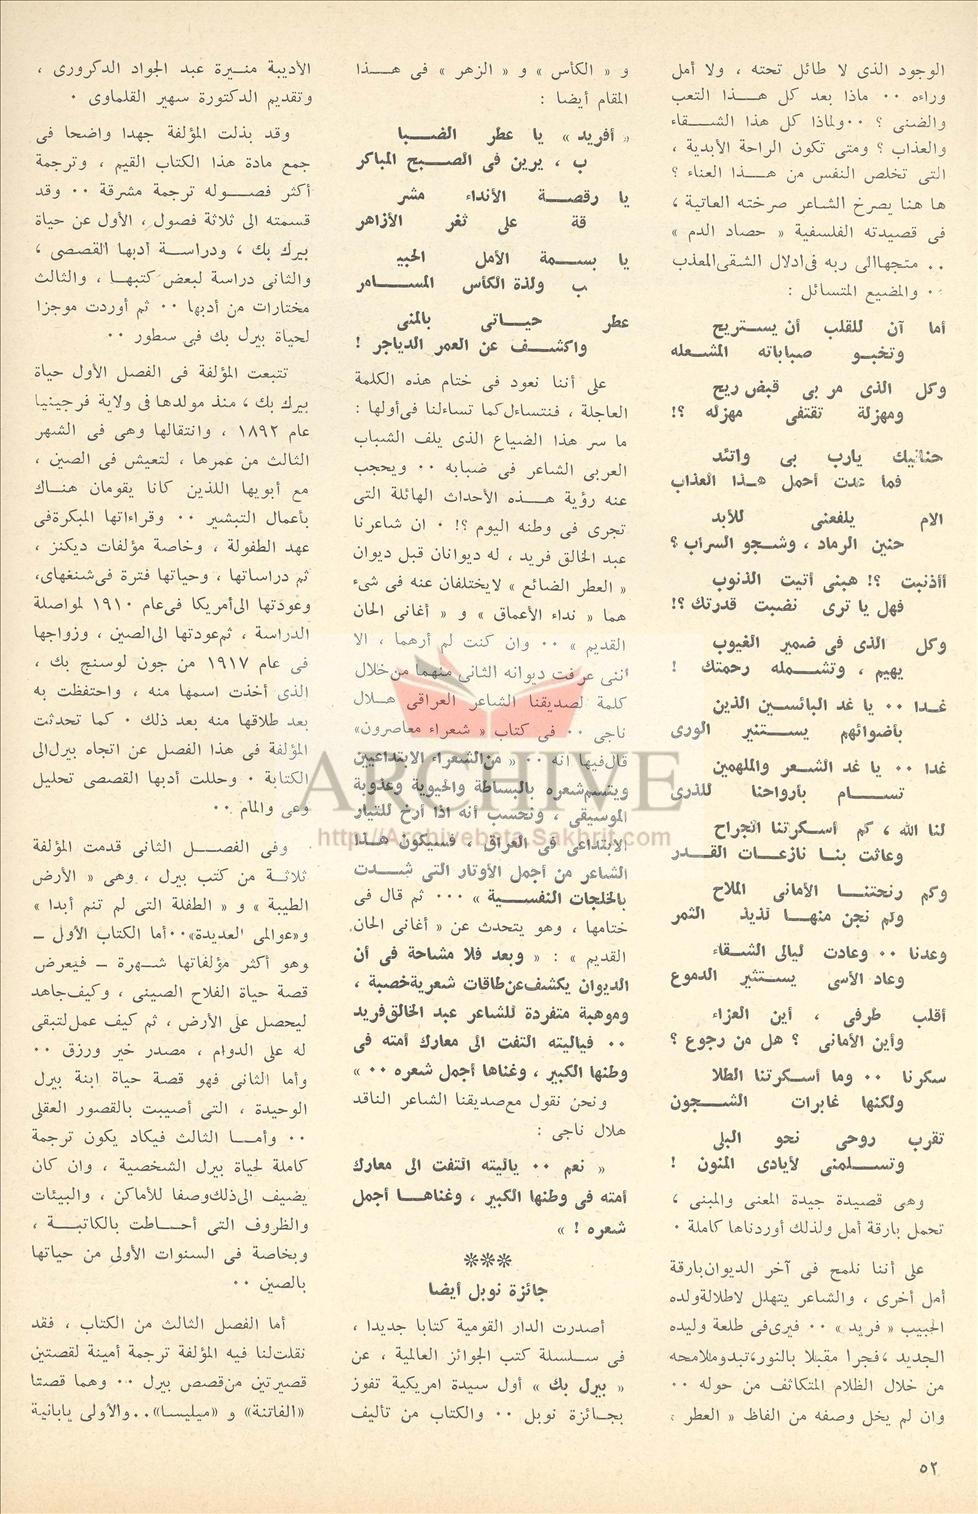 الوجود الذى لا طائل تحته ، ولا أمل
وراءه ٠٠ ماذا بعد كل هــذا التعب
والضنى ؟ ٠٠ ولماذا كل هذا الشــقاء
والعذاب ؟ ومتى تكون الراحة الأبدية ،
التى تخلص النفس من هــذا العناء ؟
ها هنا يصرخ الشاعر صرخته العاتية ،
فى قصيدته الفلسفية « حصاد الدم »
٠٠ متجها الى ربه فى ادلال الشقى المعذب
٠٠ والمضيع المتسائل :
أما آن للقلب أن يســتريح
وتخبــو صباباته المشــعله
وكل الذى مر بى قبض ريح
ومهزلة تقتفى مهزله ؟!
حنانيك يارب بى واتئد
فما عدت أحمل هــذا العذاب
الام يلفعنى للأبد
حنين الرماد ، وشــجو السراب ؟
أأذنبت ؟! هبنى أتيت الذنوب
فهل يا ترى نضبت قدرتك ؟!
وكل الذى فى ضمير الغيوب
يهيم ، وتشــمله رحمتك !
غــدا ٠٠ يا غد البائســين الذين
بأضوائهم يســتنير الورى
غدا ٠٠ يا غد الشــعر والملهمين
تســـام بأرواحنا للذرى
لنا الله ، كم أســكرتنا الجراح
وعاثت بنــا نازعــات القــدر
وكم رنحتنــا الأمانى الملاح
ولم نجن منهــا لذيذ الثمر
وعدنا ٠٠ وعادت ليالى الشــقاء
وعاد الأسى يســتثير الدموع
أقلب طرفى ، أين العزاء
وأين الأمانى ؟ هل من رجوع ؟
سكرنا ٠٠ وما أســكرتنا الطلا
ولكنها غابرات الشــجون
تقرب روحى نحو البلى
وتســلمنى لأيادى المنون !
وهى قصيدة جيدة المعنى والمبنى ،
تحمل بارقة أمل ولذلك أوردناها كاملة ٠
على أننا نلمح فى آخر الديوان بارقة
أمل أخرى ، والشاعر يتهلل لاطلالة ولده
الحبيب « فريد » ٠٠ فيرى فى طلعة وليده
الجديد ، فجرا مقبلا بالنور ، تبدو ملامحه
من خلال الظلام المتكاثف من حوله ٠٠
وان لم يخل وصفه من الفاظ « العطر ،
و « الكأس » و « الزهر » فى هــذا
المقام أيضا :
« أفريد » يا عطر الضــبا
ب ، يرين فى الصــبح المباكر
يا رقصــة الأنداء مشر
قة على ثغر الأزاهر
يا بســمة الأمل الحبيـ
ـب ولذة الكأس المســامر
عطر حيــاتى بالمنى
واكشــف عن العمر الدياجر !
على أننا نعود فى ختام هذه الكلمة
العاجلة ، فنتساءل كما تساءلنا فى أولها :
ما سر هذا الضياع الذى يلف الشباب
العربى الشاعر فى ضبابه ٠٠ ويحجب
عنه رؤية هــذه الأحداث الهائلة التى
تجرى فى وطنه اليوم ؟! ٠ ان شاعرنا
عبد الخالق فريد ، له ديوانان قبل ديوان
« العطر الضائع » لا يختلفان عنه فى شىء
هما « نداء الأعماق » و « أغانى الحان
القديم » ٠٠ وان كنت لم أرهما ، الا
اننى عرفت ديوانه الثانى منهما من خلال
كلمة لصديقنا الشاعر العراقى هــلال
ناجى ٠٠ فى كتاب « شعراء معاصرون »
قال فيها انه ٠٠ « من الشعراء الابتداعيين
ويتسم شعره بالبساطة والحيوية وعذوبة
الموسيقى ، ونحسب أنه اذا أرخ للتيار
الابتداعى فى العراق ، فسيكون هــذا
الشاعر من أجمل الأوتار التى شــدت
بالخلجات النفســية » ٠٠٠ ثم قال فى
ختامها ، وهو يتحدث عن « أغانى الحان
القديم » : « وبعد فلا مشاحة فى أن
الديوان يكشف عن طاقات شعرية خصبة ،
وموهبة متفردة للشاعر عبد الخالق فريد
٠٠ فياليته التفت الى معارك أمته فى
وطنها الكبير ، وغناها أجمل شعره ٠٠ »
ونحن نقول مع صديقنا الشاعر الناقد
هلال ناجى :
« نعم ٠٠ ياليته التفت الى معارك
أمته فى وطنها الكبير ، وغناهــا أجمل
شعره ! »
***
جائزة نوبل أيضا
أصدرت الدار القومية كتابا جديدا ،
فى سلسلة كتب الجوائز العالمية ، عن
« بيرل بك » أول سيدة امريكية تفوز
بجــائزة نوبل ٠٠ والكتاب من تأليف
الأديبة منــيرة عبد الجواد الدكرورى ،
وتقديم الدكتورة سهير القلماوى ٠
وقد بذلت المؤلفة جهدا واضحا فى
جمع مادة هذا الكتاب القيم ، وترجمة
أكثر فصــوله ترجمة مشرقة ٠٠ وقد
قسمته الى ثلاثة فصول ، الأول عن حياة
بيرك بك ، ودراســة أدبها القصصى ،
والثانى دراسة لبعض كتبهــا ، والثالث
مختارات من أدبها ٠٠ ثم أوردت موجزا
لحياة بيرل بك فى سطور ٠٠
تتبعت المؤلفة فى الفصل الأول حياة
بيرك بك ، منذ مولدها فى ولاية فرجينيا
عام ١٨٩٢ ، وانتقالها وهى فى الشهر
الثالث من عمرها ، لتعيش فى الصين ،
مع أبويها اللذين كانا يقومان هنــاك
بأعمال التبشير ٠٠ وقراءاتها المبكرة فى
عهد الطفولة ، وخاصة مؤلفات ديكنز ،
ثم دراساتها ، وحياتها فترة فى شنغهاى ،
وعودتها الى أمريكا فى عام ١٩١٠ لمواصلة
الدراسة ، ثم عودتها الى الصين ، وزواجها
فى عام ١٩١٧ من جون لوسنج بك ،
الذى أخذت اسمها منه ، واحتفظت به
بعد طلاقها منه بعد ذلك ٠ كما تحدثت
المؤلفة فى هذا الفصل عن اتجاه بيرل الى
الكتابة ٠ وحللت أدبها القصصى تحليل
وعى والمام ٠٠
وفى الفصــل الثانى قدمت المؤلفة
ثلاثــة من كتب بيرل ، وهى « الأرض
الطيبة » و « الطفلة التى لم تنم أبدا »
و « عوالمى العديدة » ٠٠ أما الكتاب الأول ــ
وهو أكثر مؤلفاتها شــهرة ــ فيعرض
قصة حياة الفلاح الصينى ، وكيف جاهد
ليحصل على الأرض ، ثم كيف عمل لتبقى
له على الدوام ، مصدر خير ورزق ٠٠
وأما الثانى فهو قصة حياة ابنة بيرل
الوحيدة ، التى أصيبت بالقصور العقلى
٠٠ وأمــا الثالث فيكاد يكون ترجمة
كاملة لحياة بيرل الشخصية ، وان كان
يضيف الى ذلك وصفا للأماكن ، والبيئات
والظروف التى أحــاطت بالكاتبــة ،
وبخاصة فى السنوات الأولى من حياتها
بالصين ٠٠
أما الفصل الثالث من الكتاب ، فقد
نقلت لنا فيه المؤلفة ترجمة أمينة لقصتين
قصيرتين من قصص بيرل ٠٠ وهما قصتا
« الفاتنة » و « ميليسا » ٠٠ والأولى يابانية
٥٢
ARCHIVE
http://Archivebeta.Sakhrit.com